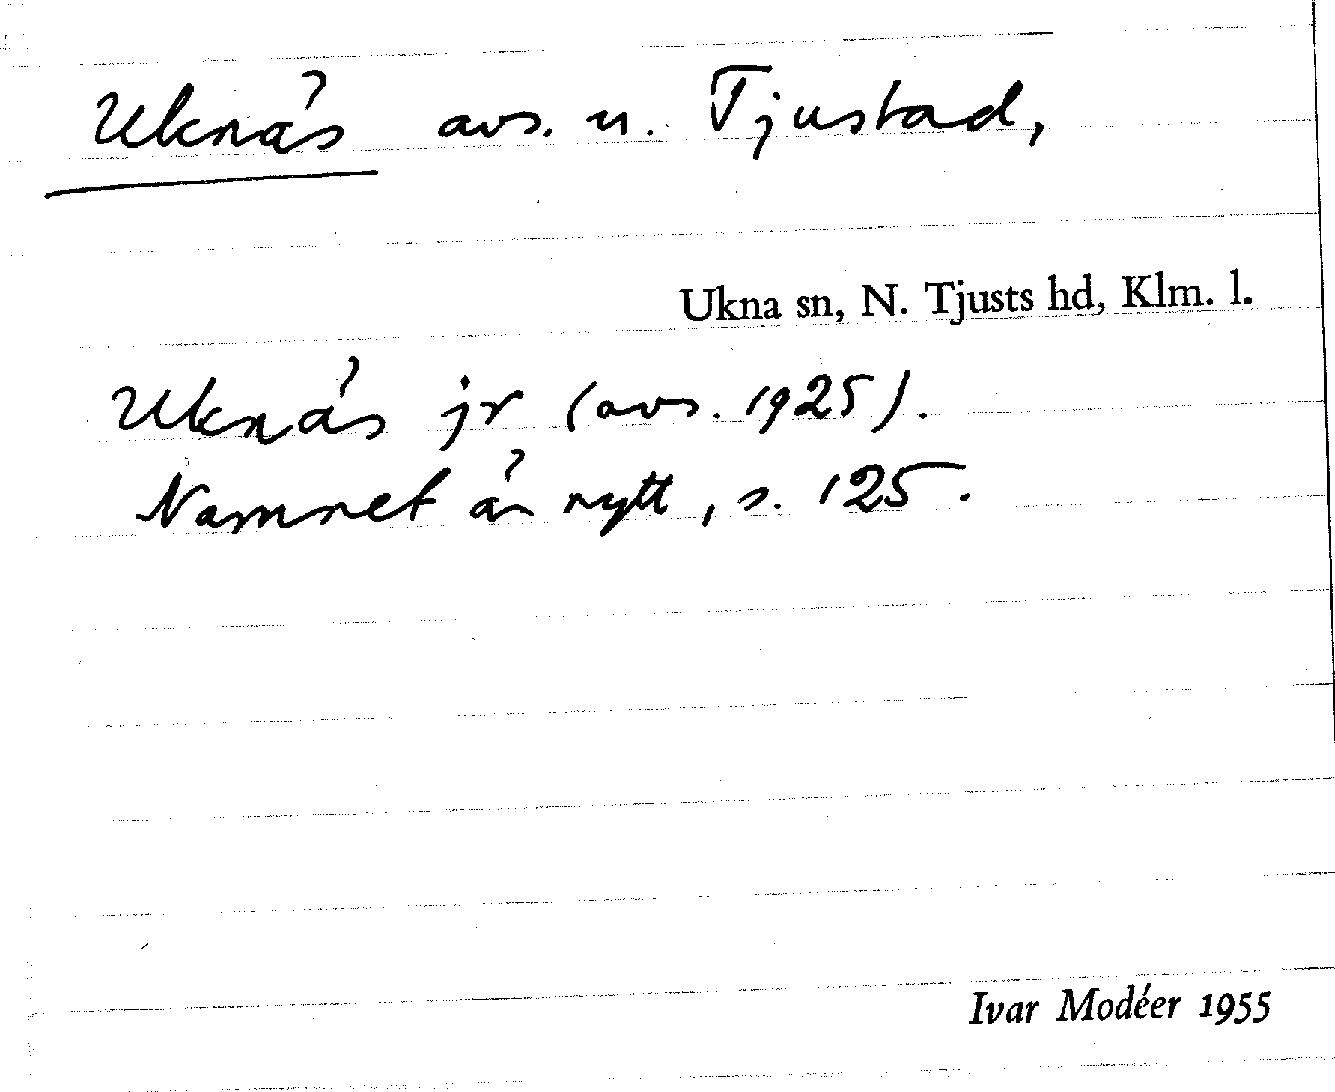 Uknäs avs. u. Tjustad,
Ukna sn, N. Tjusts hd, Klm. l.
Uknäs jr (avs. 1925).
Namnet är nytt, s. 125.
Ivar Modéer 1955